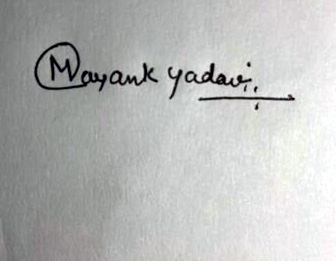 Mayank yadav